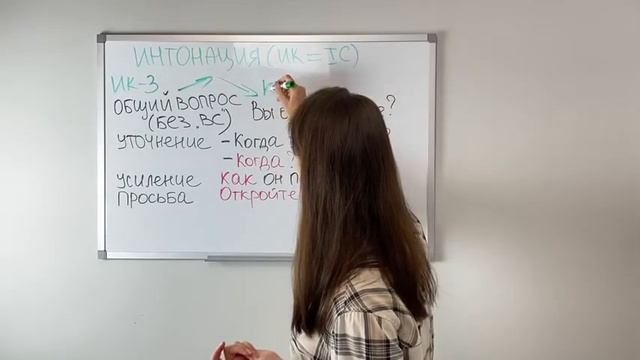 ИНТОНАЦИЯ (ИК = IC)
ИК-3
ОБЩИЙ ВОПРОС Вы е?
(БЕЗ ВС)
УТОЧНЕНИЕ - Когда
- Когда?
УСИЛЕНИЕ Как он п
ПРОСЬБА Откройте